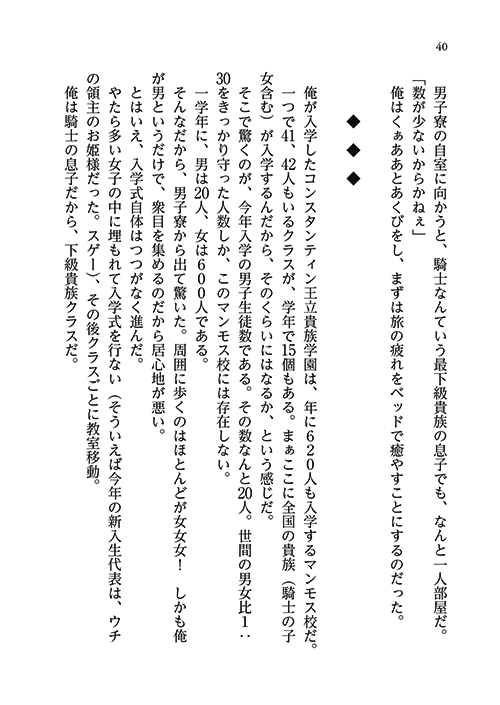 40
男子寮の自室に向かうと、騎士なんていう最下級貴族の息子でも、なんと一人部屋だ。
「数が少ないからかねぇ」
俺はくぁああとあくびをし、まずは旅の疲れをベッドで癒やすことにするのだった。
◆ ◆ ◆
俺が入学したコンスタンティン王立貴族学園は、年に６２０人も入学するマンモス校だ。
一つで41、42人もいるクラスが、学年で15個もある。まぁここに全国の貴族（騎士の子
女含む）が入学するんだから、そのくらいにはなるか、という感じだ。
そこで驚くのが、今年入学の男子生徒数である。その数なんと20人。世間の男女比１：
30をきっかり守った人数しか、このマンモス校には存在しない。
一学年に、男は20人、女は６００人である。
そんなだから、男子寮から出て驚いた。周囲に歩くのはほとんどが女女女！　しかも俺
が男というだけで、衆目を集めるのだから居心地が悪い。
とはいえ、入学式自体はつつがなく進んだ。
やたら多い女子の中に埋もれて入学式を行ない（そういえば今年の新入生代表は、ウチ
の領主のお姫様だった。スゲー）、その後クラスごとに教室移動。
俺は騎士の息子だから、下級貴族クラスだ。